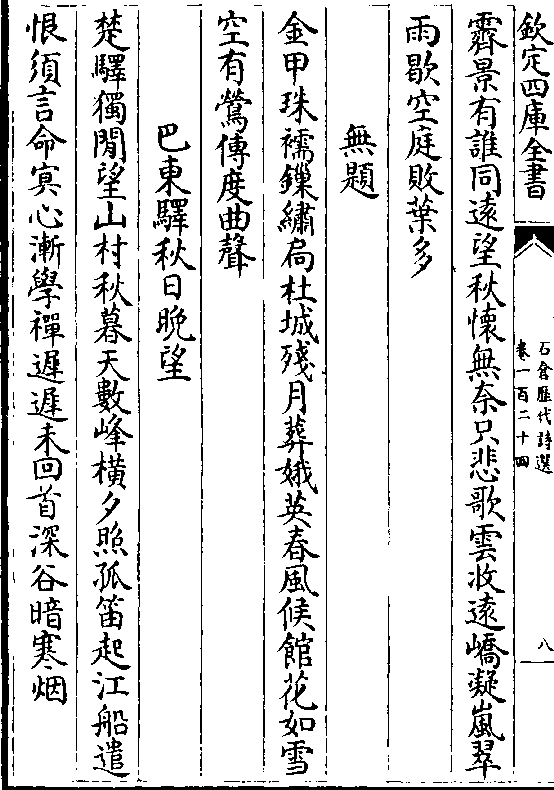 欽定四庫全書
石倉歷代詩選
卷一百二十四
八
霽景有誰同遠望秋懷無奈只悲歌雲收遠嶠凝嵐翠
雨歇空庭敗葉多
無題
金甲珠襦鏁繡局杜城殘月葬娥英春風候館花如雪
空有鶯傳度曲聲
巴東驛秋日晚望
楚驛獨閒望山村秋暮天數峰橫夕照孤笛起江船遣
恨須言命冥心漸學禪遲遲未回首深谷暗寒烟